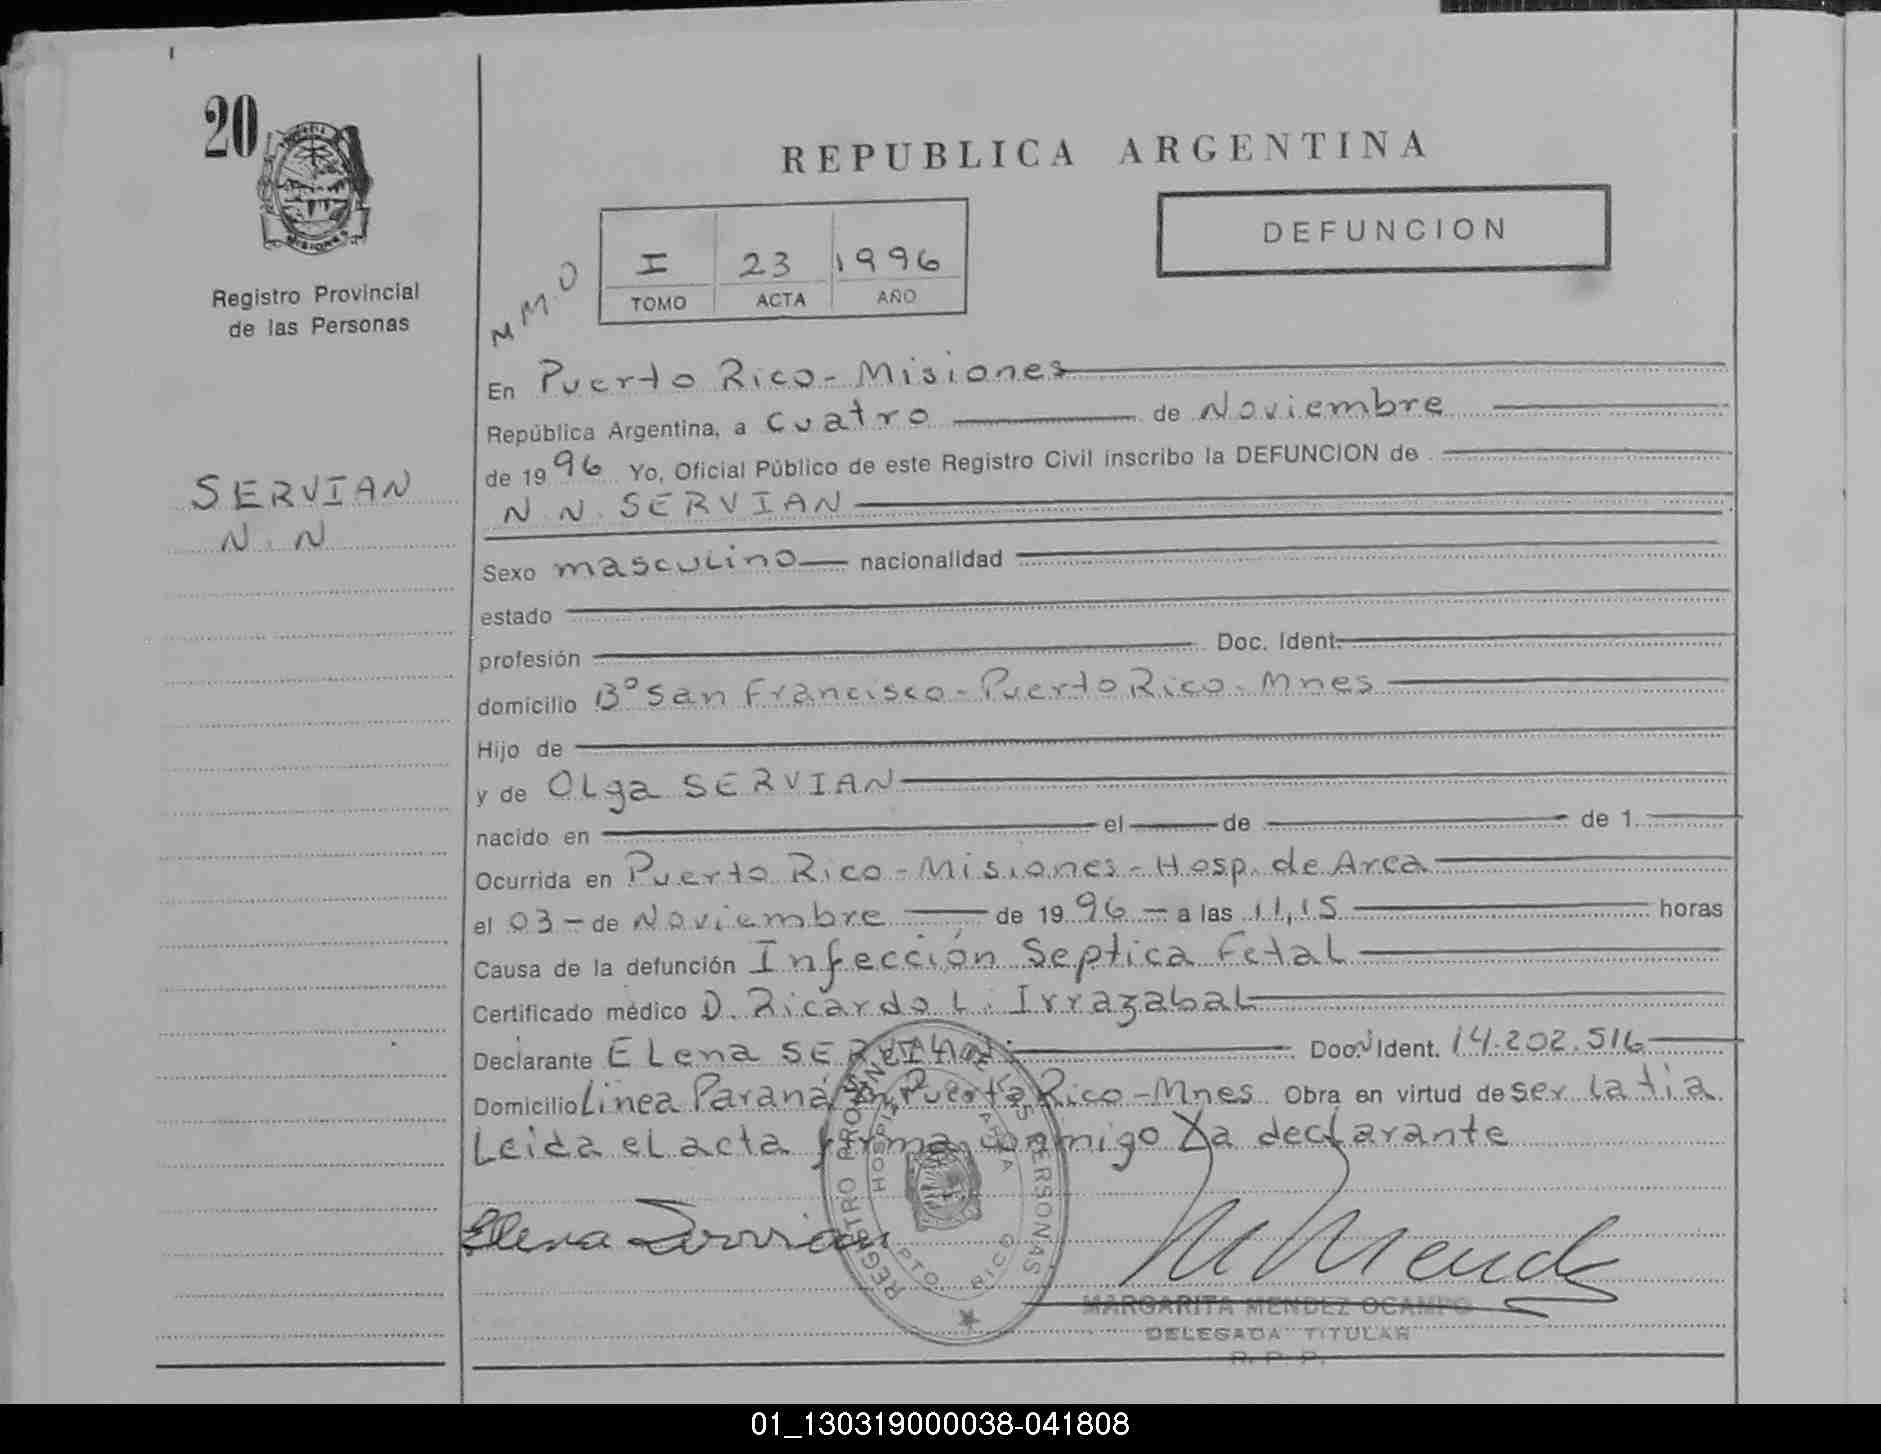 20
Registro Provincial
de las Personas
SERVIAN
N. N
REPUBLICA ARGENTINA
DEFUNCION
I 23 1996
TOMO ACTA AÑO
En Puerto Rico - Misiones
República Argentina, a cuatro de Noviembre
de 1996 Yo, Oficial Público de este Registro Civil inscribo la DEFUNCION de
N N. SERVIAN
Sexo masculino nacionalidad
estado
profesión Doc. Ident.
domicilio Bº San Francisco - Puerto Rico - Mnes
Hijo de
y de Olga SERVIAN
nacido en el de de 1
Ocurrida en Puerto Rico - Misiones - Hosp. de Area
el 03 - de Noviembre de 1996 - a las 11,15 horas
Causa de la defunción Infección Septica Fetal
Certificado médico D. Ricardo L. Irrazabal
Declarante Elena SERVIAN Doc. Ident. 14.202.516
Domicilio Linea Paraná Puerto Rico - Mnes Obra en virtud de ser la tia
Leida el acta firma conmigo La declarante
Elena Servian
REGISTRO PERSONAS
HOSPI
PTO RICO
M Mende
MARGARITA MENDEZ OCAMPO
DELEGADA TITULAR
R. P. P.
01_130319000038-041808